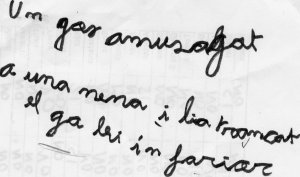 Un gos amusagat
a una nena i lia trancat
el ga lei in fariar